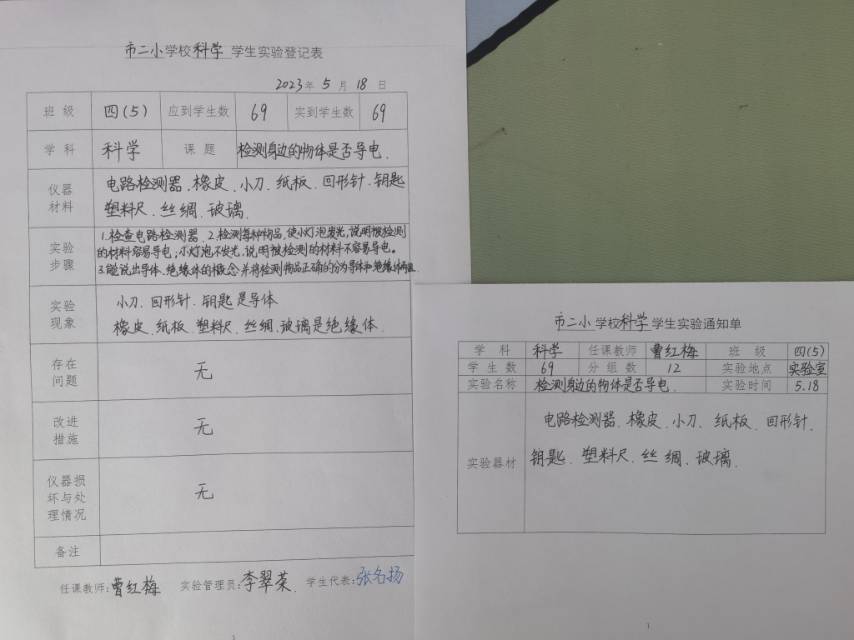 市二小学校科学 学生实验登记表
2023年 5 月 18 日
班 级 四(5) 应到学生数 69 实到学生数 69
学 科 科学 课 题 检测身边的物体是否导电.
仪器材料 电路检测器、橡皮、小刀、纸板、回形针、钥匙
塑料尺、丝绸、玻璃.
实验步骤 1.检查电路检测器、2.检测每种物品,使小灯泡发光,说明被检测
的材料容易导电;小灯泡不发光,说明被检测的材料不容易导电。
3.能说出导体、绝缘体的概念并将检测物品正确的分为导体和绝缘体两组
实验现象 小刀、回形针、钥匙是导体
橡皮、纸板、塑料尺、丝绸、玻璃是绝缘体.
存在问题 无
改进措施 无
仪器损坏与处理情况 无
备注
任课教师:曹红梅 实验管理员:李翠荣. 学生代表:张名扬
1
市二小学校科学学生实验通知单
学 科 科学 任课教师 曹红梅 班 级 四(5)
学 生 数 69 分 组 数 12 实验地点 实验室
实验名称 检测身边的物体是否导电. 实验时间 5.18
实验器材 电路检测器、橡皮、小刀、纸板、回形针、
钥匙、塑料尺、丝绸、玻璃.
1